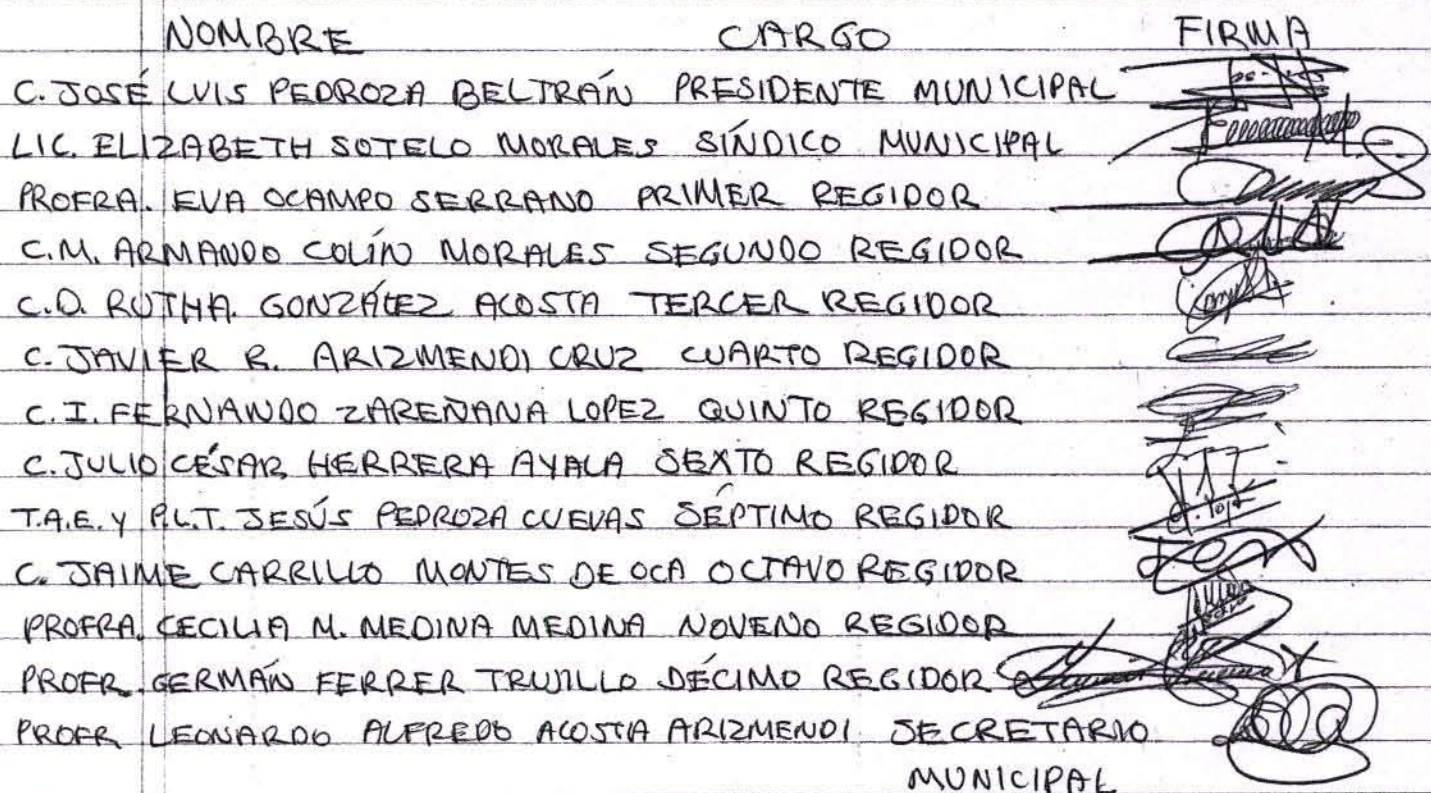 NOMBRE CARGO FIRMA
C. JOSÉ LUIS PEDROZA BELTRÁN PRESIDENTE MUNICIPAL
LIC. ELIZABETH SOTELO MORALES SÍNDICO MUNICIPAL
PROFRA. EVA OCAMPO SERRANO PRIMER REGIDOR
C.M. ARMANDO COLÍN MORALES SEGUNDO REGIDOR
C.D. RUTHA. GONZÁLEZ ACOSTA TERCER REGIDOR
C. JAVIER R. ARIZMENDI CRUZ CUARTO REGIDOR
C.I. FERNANDO ZAREÑANA LOPEZ QUINTO REGIDOR
C. JULIO CÉSAR HERRERA AYALA SEXTO REGIDOR
T.A.E. Y P.L.T. JESÚS PEDROZA CUEVAS SÉPTIMO REGIDOR
C. JAIME CARRILLO MONTES DE OCA OCTAVO REGIDOR
PROFRA. CECILIA M. MEDINA MEDINA NOVENO REGIDOR
PROFR. GERMÁN FERRER TRUJILLO DÉCIMO REGIDOR
PROFR LEONARDO ALFREDO ACOSTA ARIZMENDI SECRETARIO
MUNICIPAL